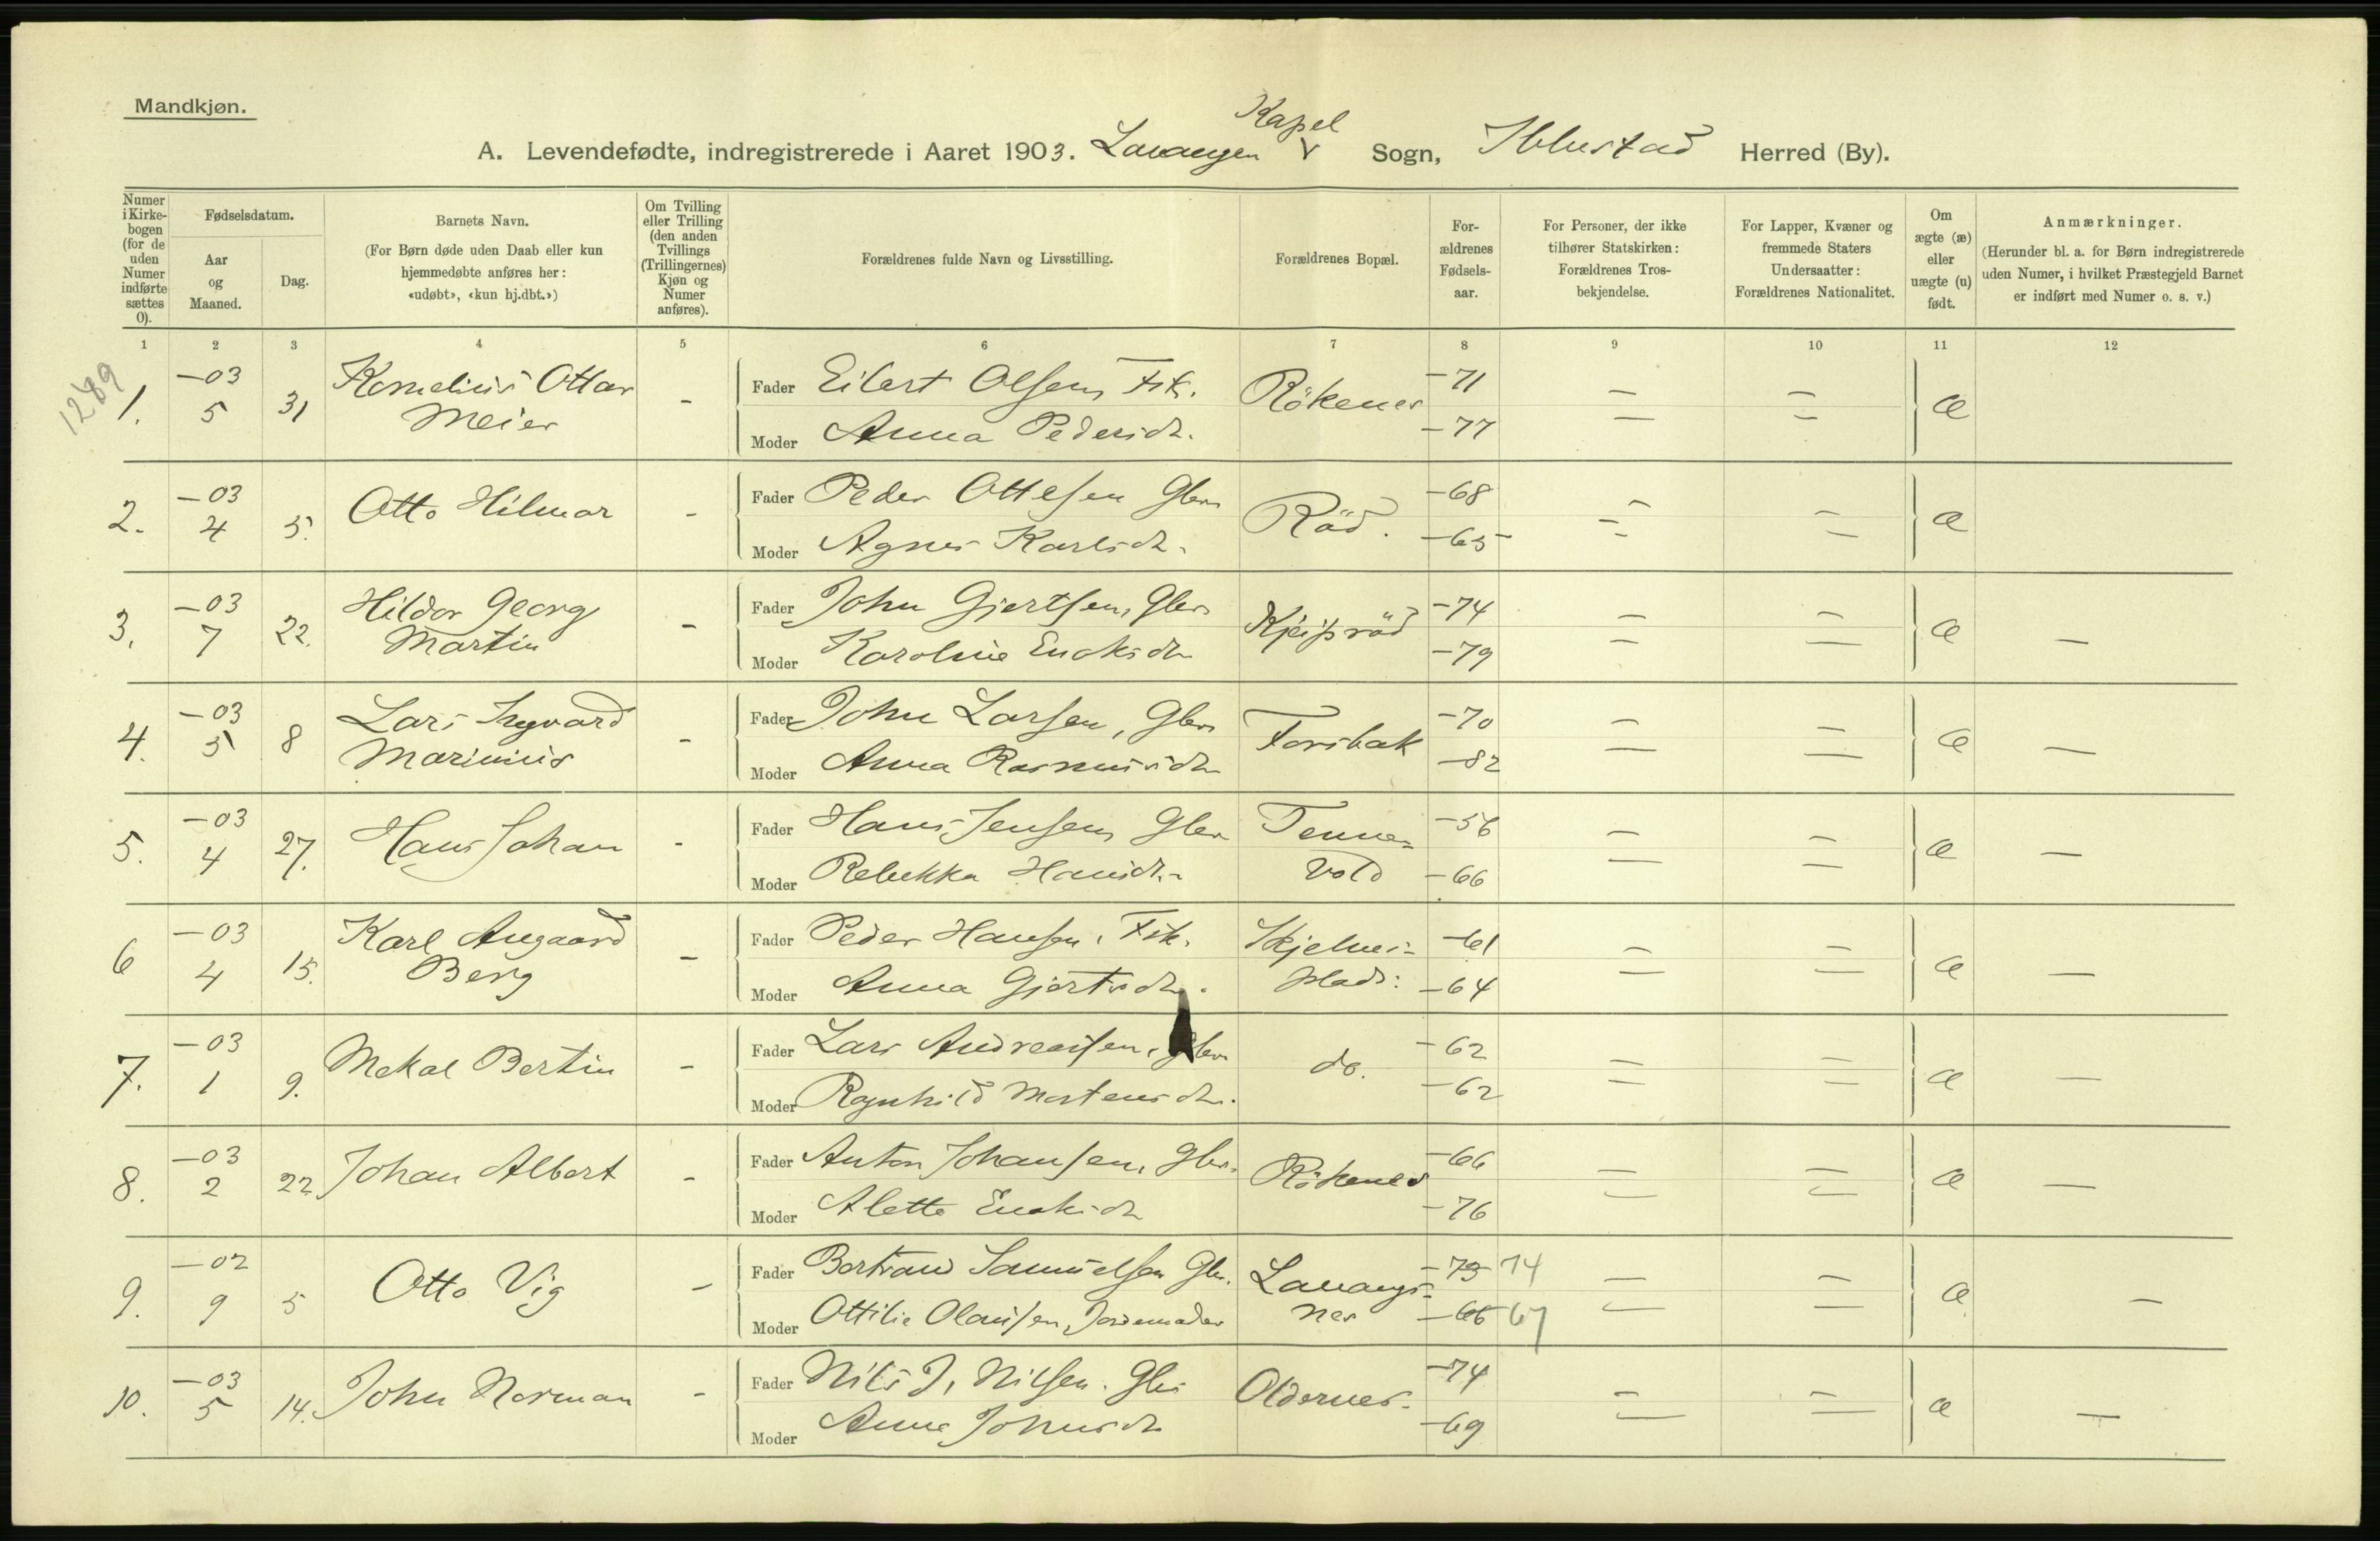 Mandkjøn.
Kapel
A. Levendefødte, indregistrerede i Aaret 1903. Lavangen v Sogn, Ibbestad Herred (By).
Numer i Kirke- bogen (for de uden Numer indførte sættes 0).
Fødselsdatum.
Aar og Maaned.
Dag.
Barnets Navn.
(For Børn døde uden Daab eller kun hjemmedøbte anføres her: «udøbt», «kun hj.dbt.»)
Om Tvilling eller Trilling (den anden Tvillings (Trillingernes) Kjøn og Numer anføres).
Forældrenes fulde Navn og Livsstilling.
Forældrenes Bopæl.
For- ældrenes Fødsels- aar.
For Personer, der ikke tilhører Statskirken: Forældrenes Tros- bekjendelse.
For Lapper, Kvæner og fremmede Staters Undersaatter: Forældrenes Nationalitet.
Om ægte (æ) eller uægte (u) født.
Anmærkninger.
(Herunder bl. a. for Børn indregistrerede uden Numer, i hvilket Præstegjeld Barnet er indført med Numer o. s. v.)
1 2 3 4 5 6 7 8 9 10 11 12
1. -03 5 31 Kornelius Ottar Meier -
Fader Eilert Olsen, Fsk. Rökenes -71 æ
Moder Anna Pedersdr. -77
2. -03 4 5. Otto Hilmar -
Fader Peder Ottesen Gbr. Röd. -68 æ
Moder Agnes Karlsdr. -65
3. -03 7 22. Hildor Georg Martin -
Fader John Gjertsen, Gbr. Kjeipröd -74 æ —
Moder Karoline Enoksdr -79
4. -03 5 8 Lars Ingvard Marinius -
Fader John Larsen, Gbr. Forsbak -70 æ —
Moder Anna Rasmusdr -82
5. -03 4 27. Hans Johan -
Fader Hans Jensen, Gbr Tenne- vold -56 æ —
Moder Rebekka Hansdr. -66
6 -03 4 15. Karl Angaard Berg -
Fader Peder Hansen, Fsk. Skjelnes- plads: -61 æ —
Moder Anna Gjertsdr. -64
7. -03 1 9. Mekal Bertin -
Fader Lars Andreassen, Gbr do. -62 æ —
Moder Ragnhild Mortensdr. -62
8. -03 2 22 Johan Albert -
Fader Anton Johansen, Gbr. Rökenes -66 æ —
Moder Alette Enoksdr -76
9. -02 9 5 Otto Vig -
Fader Bertrand Samuelsen Gbr. Lavangs- nes -73 74 æ —
Moder Ottilie Olausen, Jordemoder -66 67
10. -03 5 14. John Norman -
Fader Nils J. Nilsen. Gbr Oldernes. -74 æ —
Moder Anne Johnsdr -69